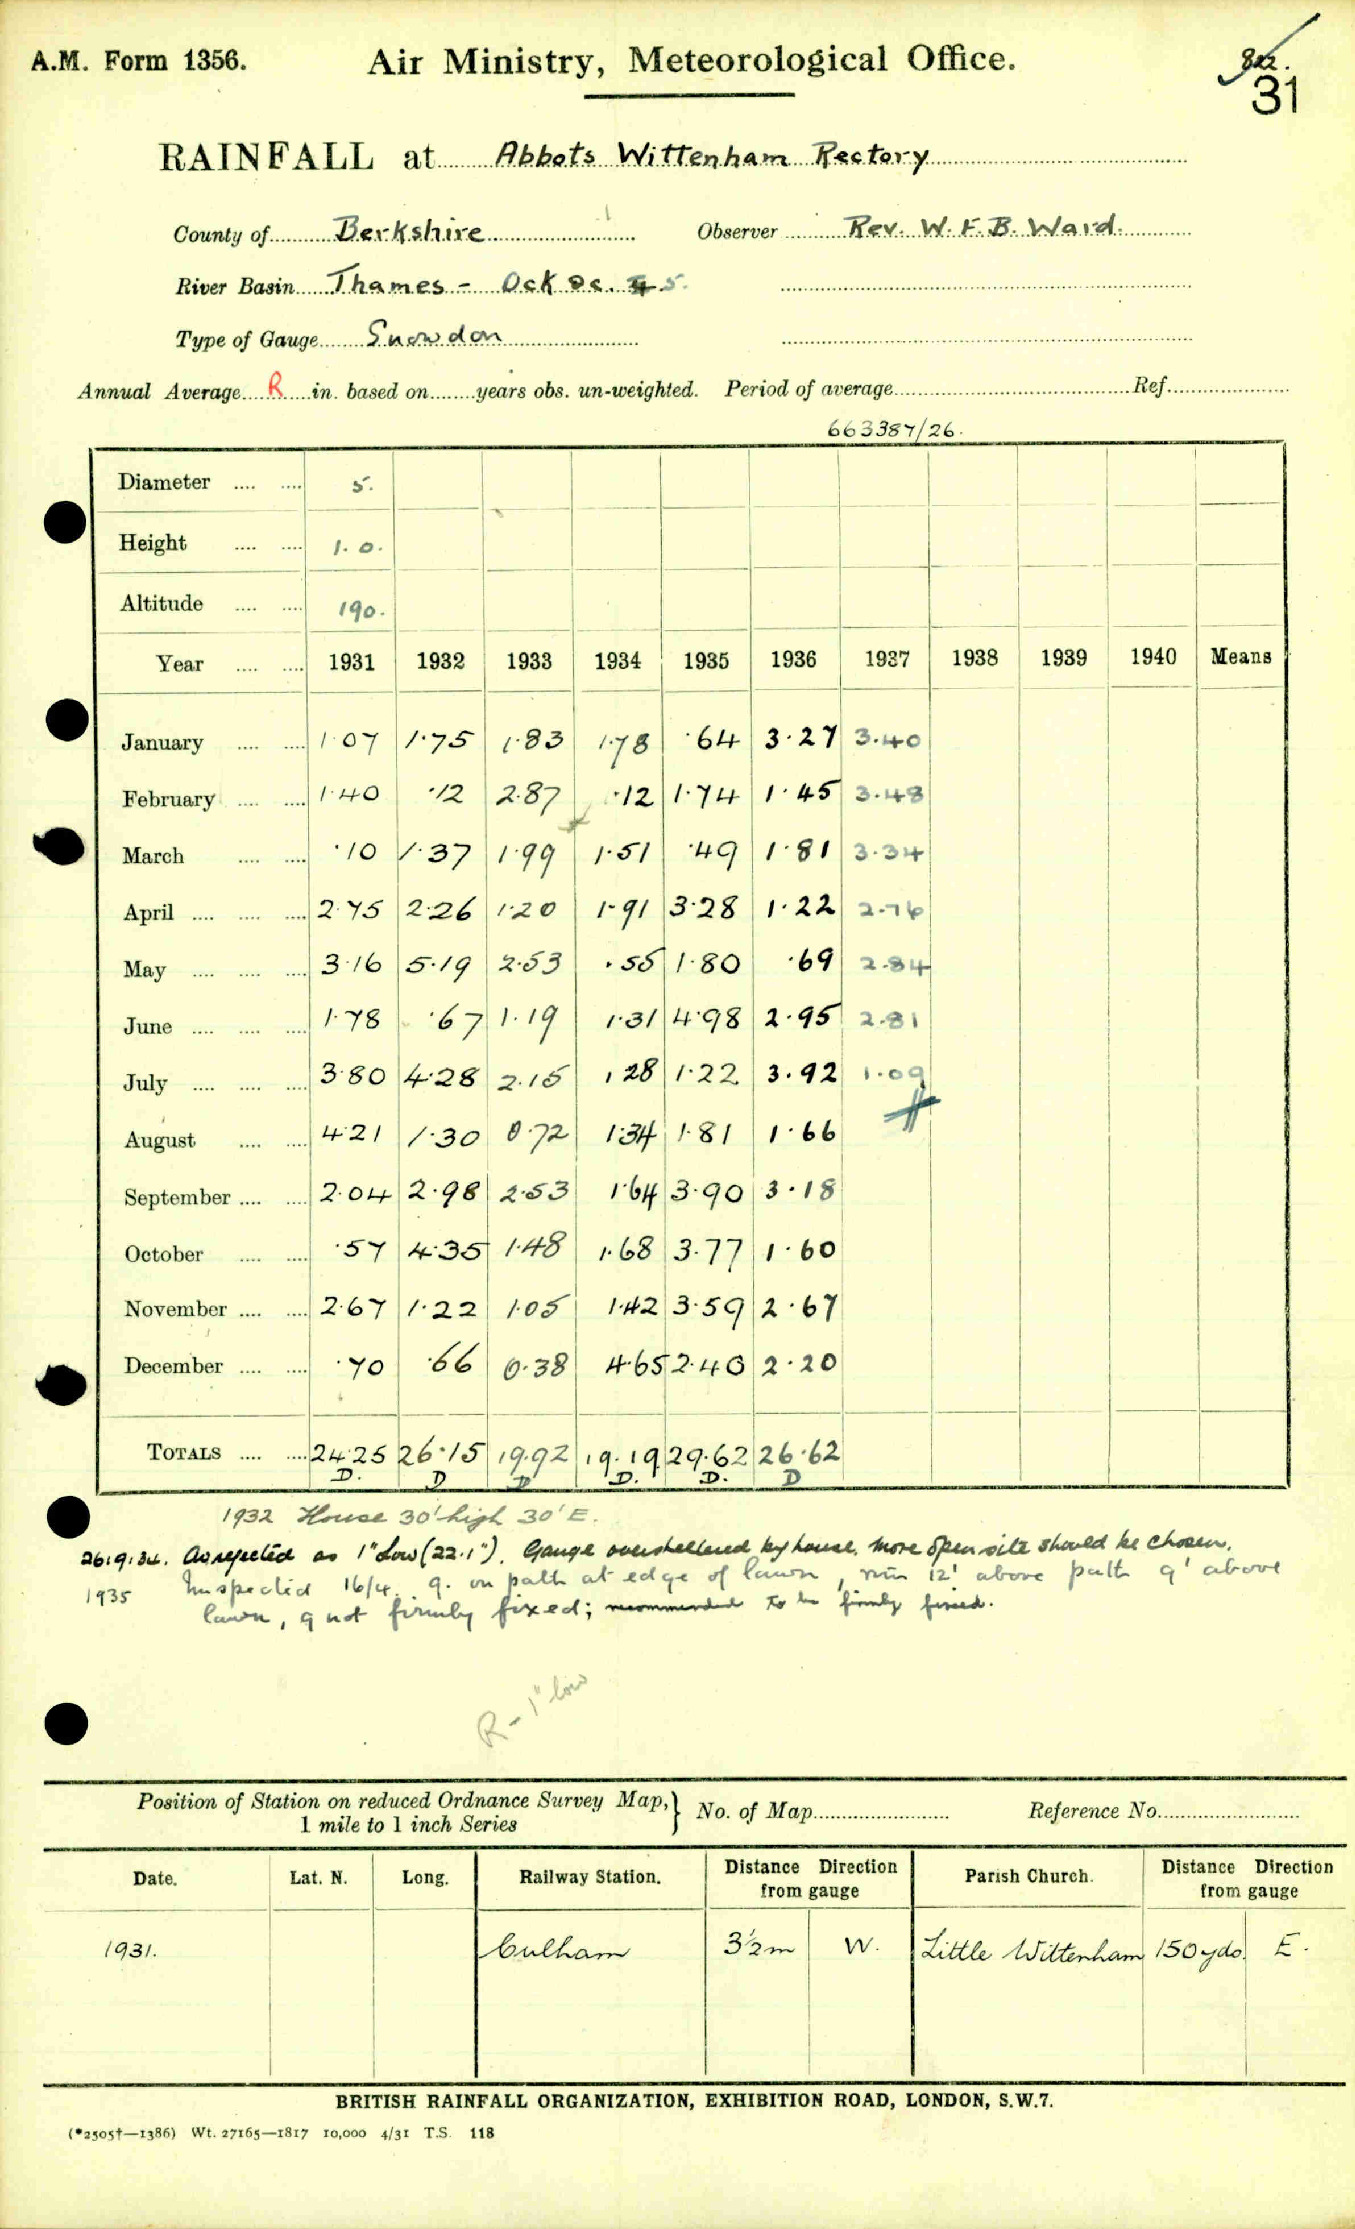 A.M. Form 1356. Air Ministry, Meteorological Office.
31
RAINFALL at Abbots Wittenham Rectory
County of Berkshire Observer Rev. W. F. B. Ward.
River Basin Thames - Ock &c. 5.
Type of Gauge Snowdon
Annual Average R in. based on years obs. un-weighted. Period of average Ref.
663387/26.
Diameter 5.
Height 1.0.
Altitude 190.
Year 1931 1932 1933 1934 1935 1936 1937 1938 1939 1940 Means
January 1·07 1·75 1·83 1·78 ·64 3·27 3·40
February 1·40 ·12 2·87 ·12 1·74 1·45 3·48
March ·10 1·37 1·99 1·51 ·49 1·81 3·34
April 2·75 2·26 1·20 1·91 3·28 1·22 2·76
May 3·16 5·19 2·53 ·55 1·80 ·69 2·84
June 1·78 ·67 1·19 1·31 4·98 2·95 2·81
July 3·80 4·28 2·15 1·28 1·22 3·92 1·09
August 4·21 1·30 0·72 1·34 1·81 1·66
September 2·04 2·98 2·53 1·64 3·90 3·18
October ·57 4·35 1·48 1·68 3·77 1·60
November 2·67 1·22 1·05 1·42 3·59 2·67
December ·70 ·66 0·38 4·65 2·40 2·20
TOTALS 24·25 26·15 19·92 19·19 29·62 26·62
D. D D D. D. D
1932 House 30' high 30' E.
26.9.34. As rejected as 1" low (22.1"). Gauge oversheltered by house, more open site should be chosen.
1935 Inspected 16/4. g. on path at edge of lawn, rim 12" above path 9" above
lawn, g not firmly fixed; recommended to be firmly fixed.
R - 1" low
Position of Station on reduced Ordnance Survey Map, } No. of Map Reference No.
1 mile to 1 inch Series
Date. Lat. N. Long. Railway Station. Distance Direction from gauge Parish Church. Distance Direction from gauge
1931. Culham 3½m W. Little Wittenham 150yds E.
BRITISH RAINFALL ORGANIZATION, EXHIBITION ROAD, LONDON, S.W.7.
(*2505†—1386) Wt. 27165—1817 10,000 4/31 T.S. 118